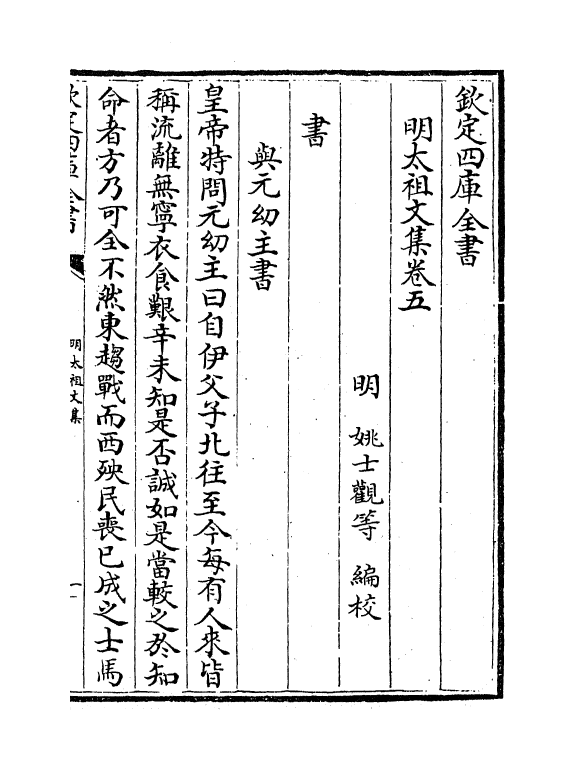 欽定四庫全書
明太祖文集卷五
明 姚士觀等 編校
書
與元幼主書
皇帝特問元幼主曰自伊父子北往至今每有人來皆
稱流離無寧衣食艱辛未知是否誠如是當較之於知
命者方乃可全不然東趨戰而西殃民喪已成之士馬
欽定四庫全書
明太祖文集
一